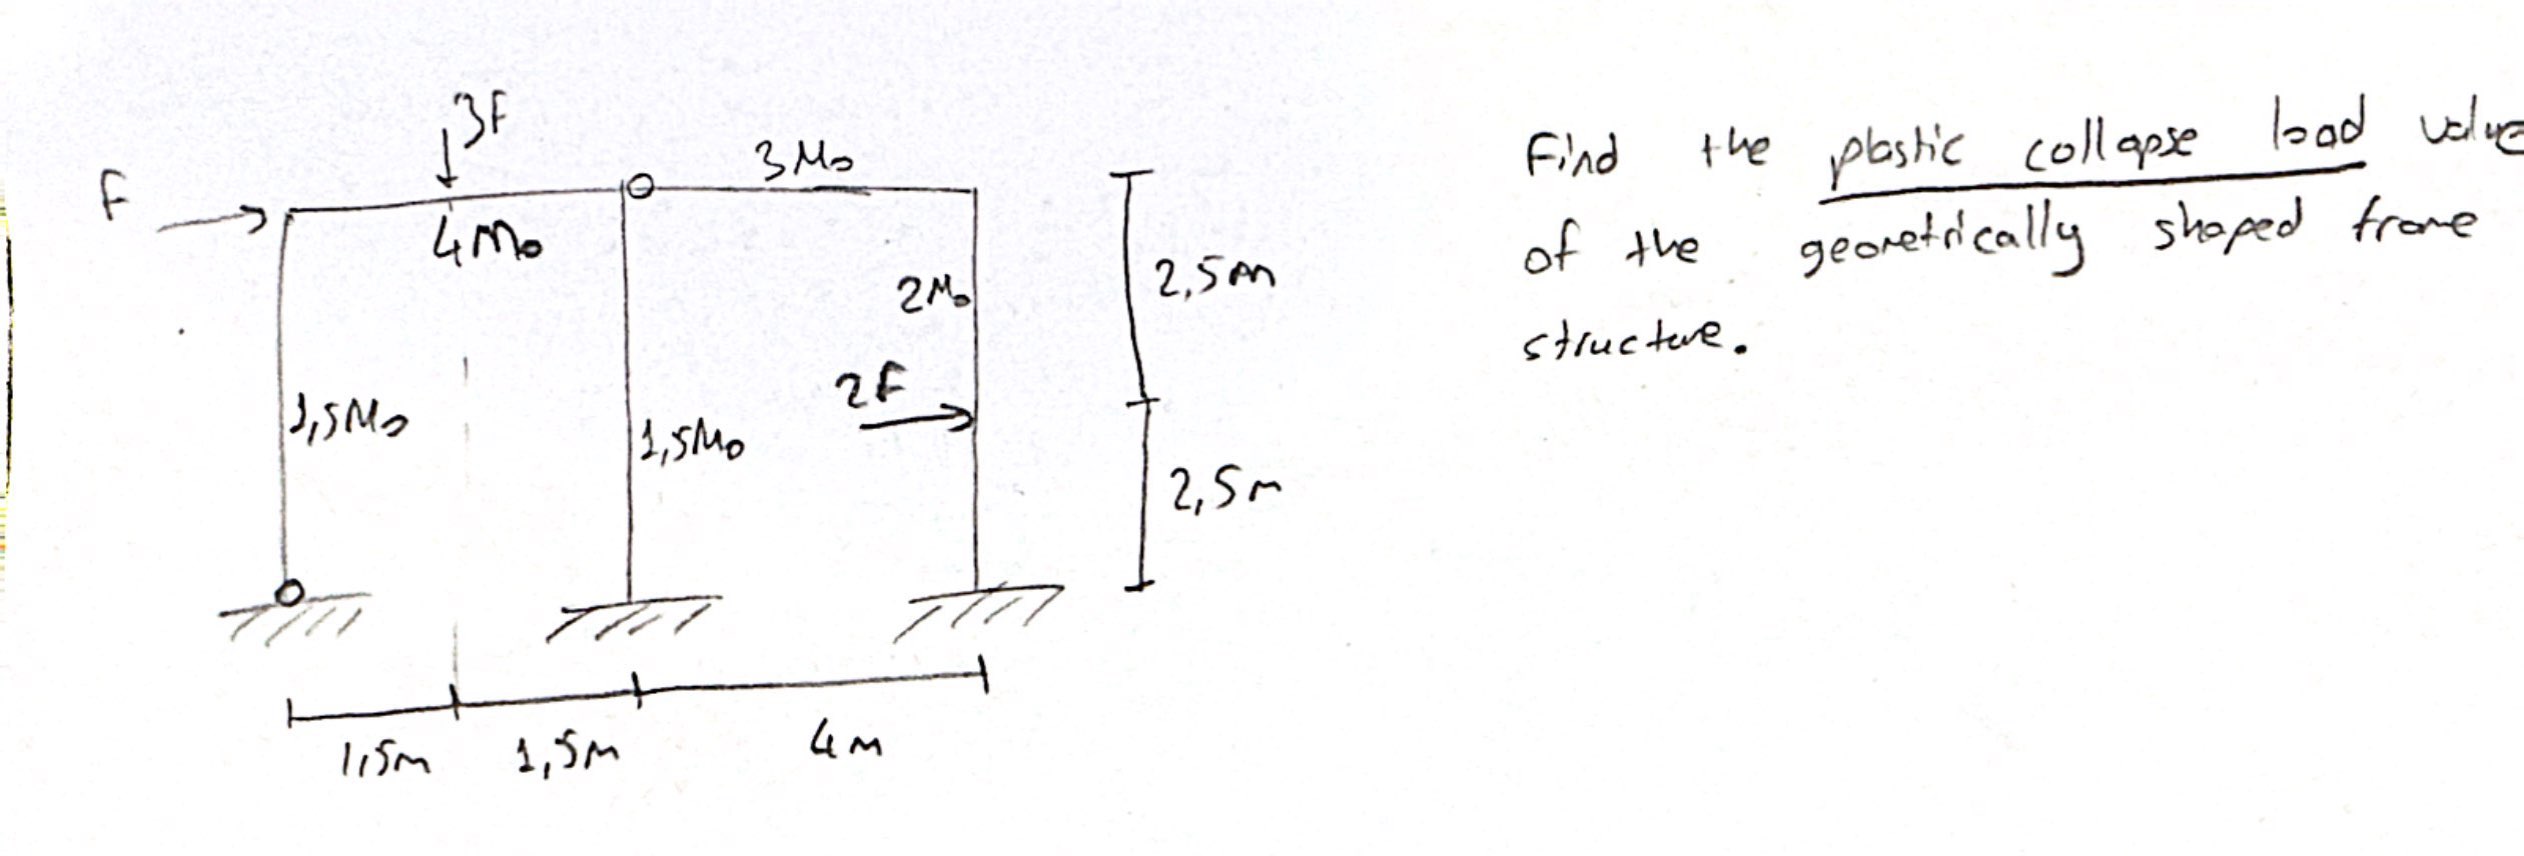 3F
F
4M₀
3M₀
2M₀
2F
1,5M₀
1,5M₀
2,5m
2,5m
1,5m
1,5m
4m
Find the plastic collapse load value
of the geometrically shaped frame
structure.